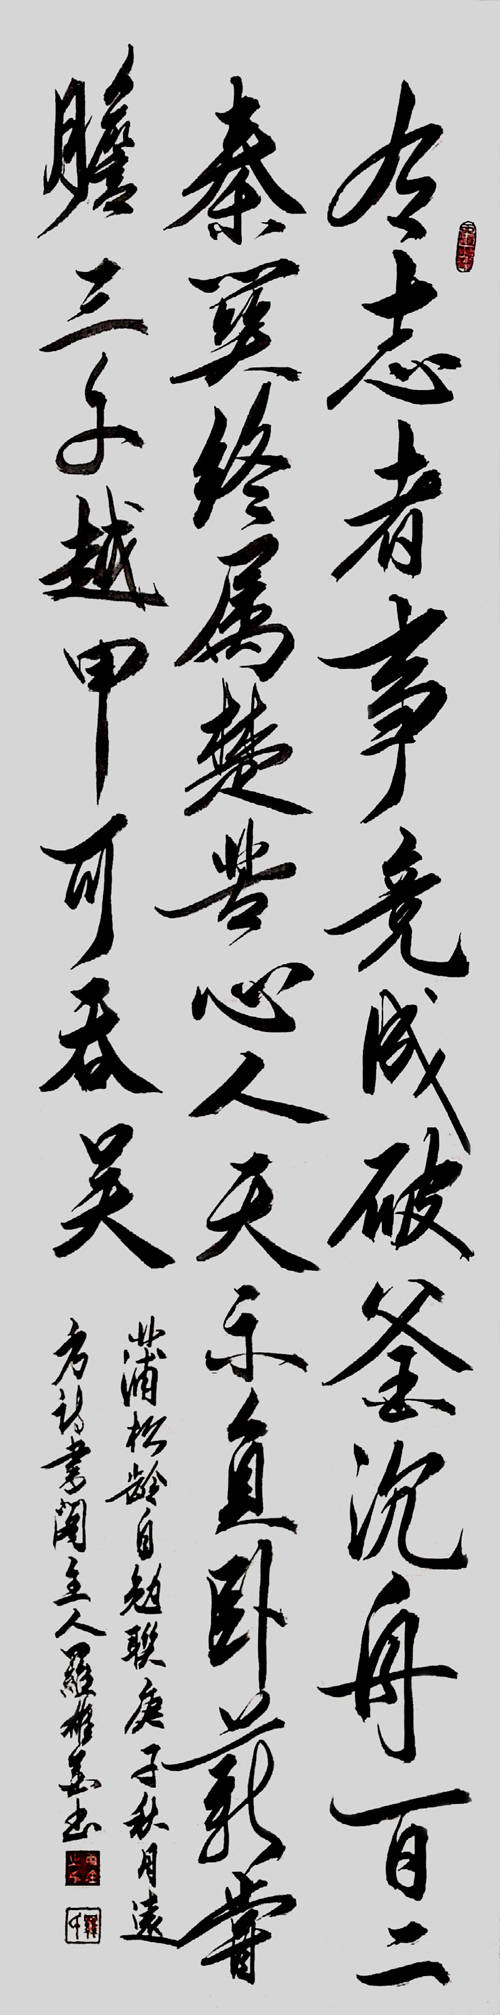 有志者事竟成破釜沉舟百二
秦関終属楚苦心人天不負卧薪嘗
膽三千越甲可吞吴
蒲松齡自勉聯庚子秋月遠
方詩書閣主人羅書